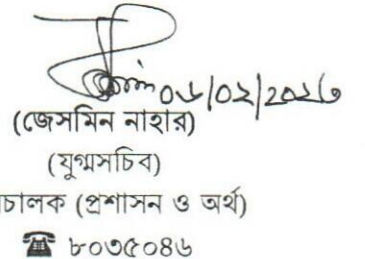 ০৬/০২/২০২৩
(জেসমিন নাহার)
(যুগ্মসচিব)
চালক (প্রশাসন ও অর্থ)
☎ ৮০৩৫০৪৬